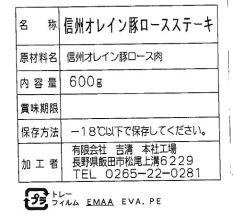 名称 信州オレイン豚ロースステーキ
原材料名 信州オレイン豚ロース肉
内容量 600g
賞味期限
保存方法 －18℃以下で保存してください。
加工者 有限会社 吉清 本社工場
長野県飯田市松尾上溝6229
TEL 0265-22-0281
プラ トレー
フィルム EMAA EVA, PE